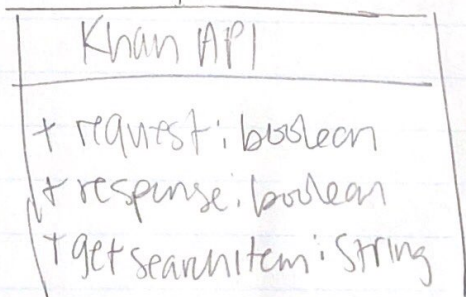 Khan API
+ request: boolean
+ response: boolean
+ getsearchItem: String